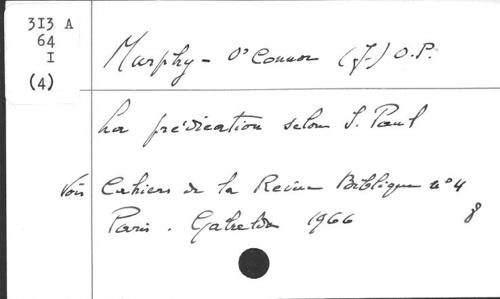 313 A
64
I
(4)
Murphy-O'Connor (J.) O.P.
La prédication selon S. Paul
Voir Cahiers de la Revue Biblique n° 4
Paris. Gabalda 1966
8